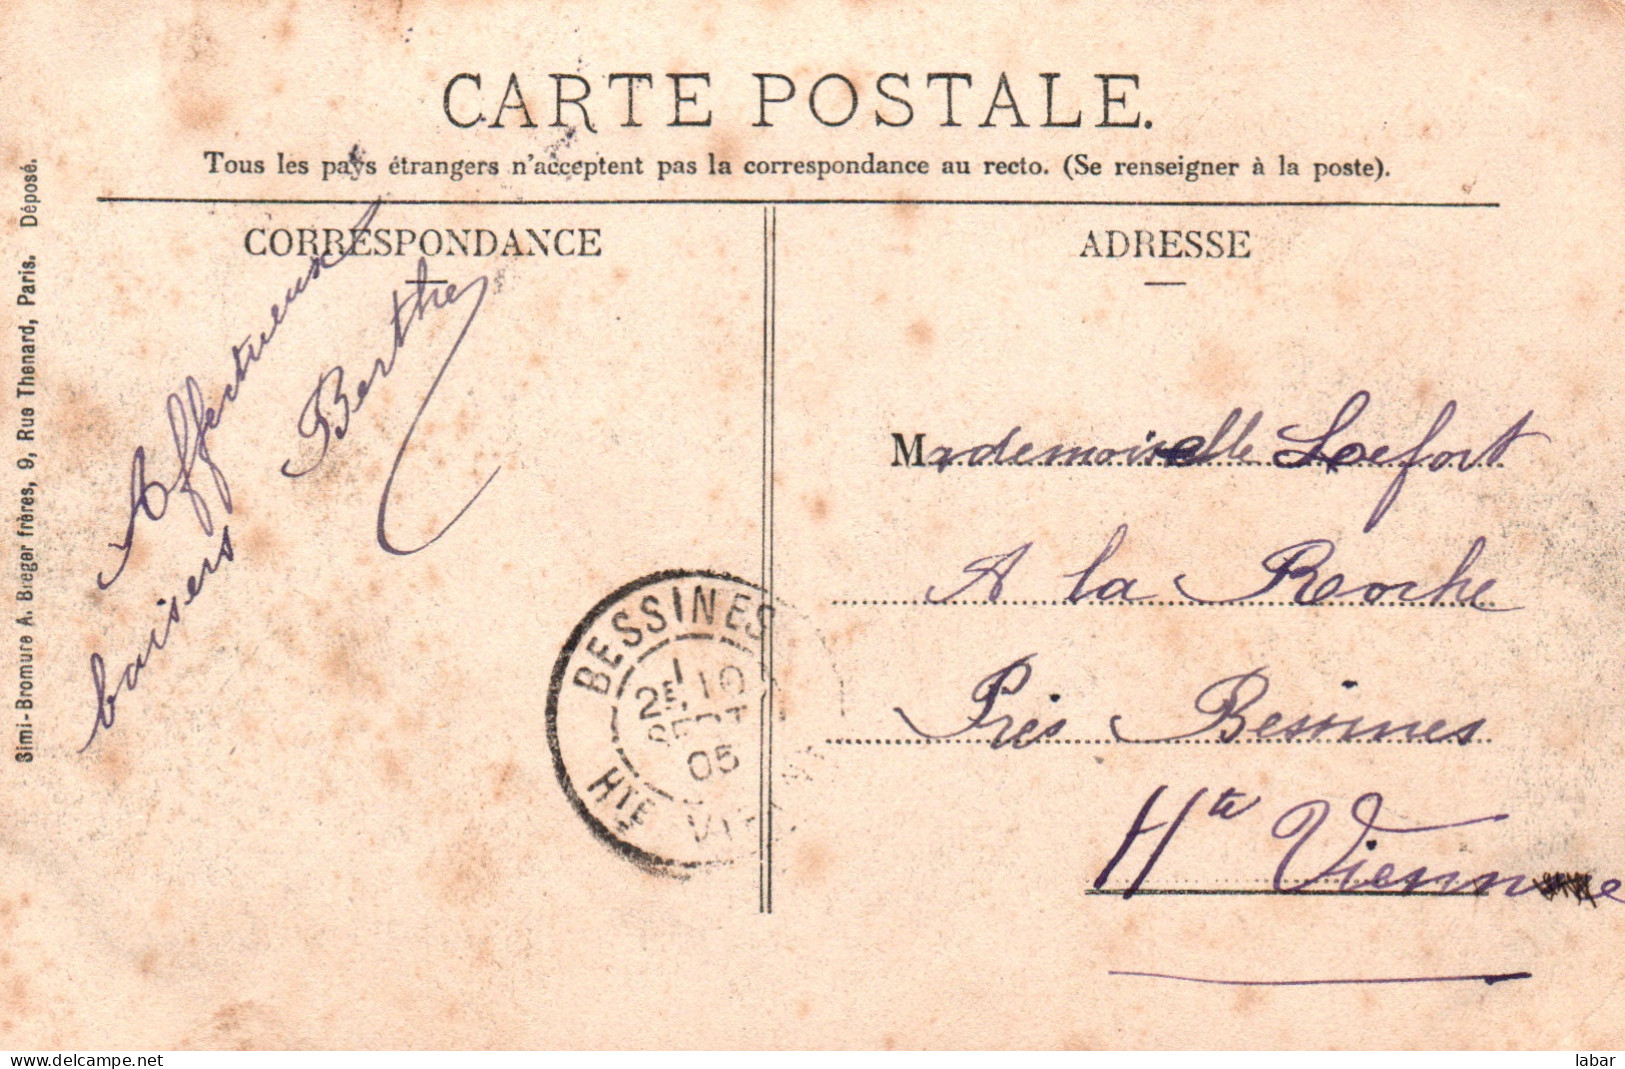 CARTE POSTALE.
Tous les pays étrangers n'acceptent pas la correspondance au recto. (Se renseigner à la poste).
Simi-Bromure A. Breger frères, 9, Rue Thenard, Paris. Déposé.
CORRESPONDANCE
Affectueux
baisers
Berthe
ADRESSE
Mademoiselle Lefort
A la Roche
Près Bessines
Hte Vienne
BESSINES
25
SEPT
05
HTE VIENNE
delcampe.net
labar